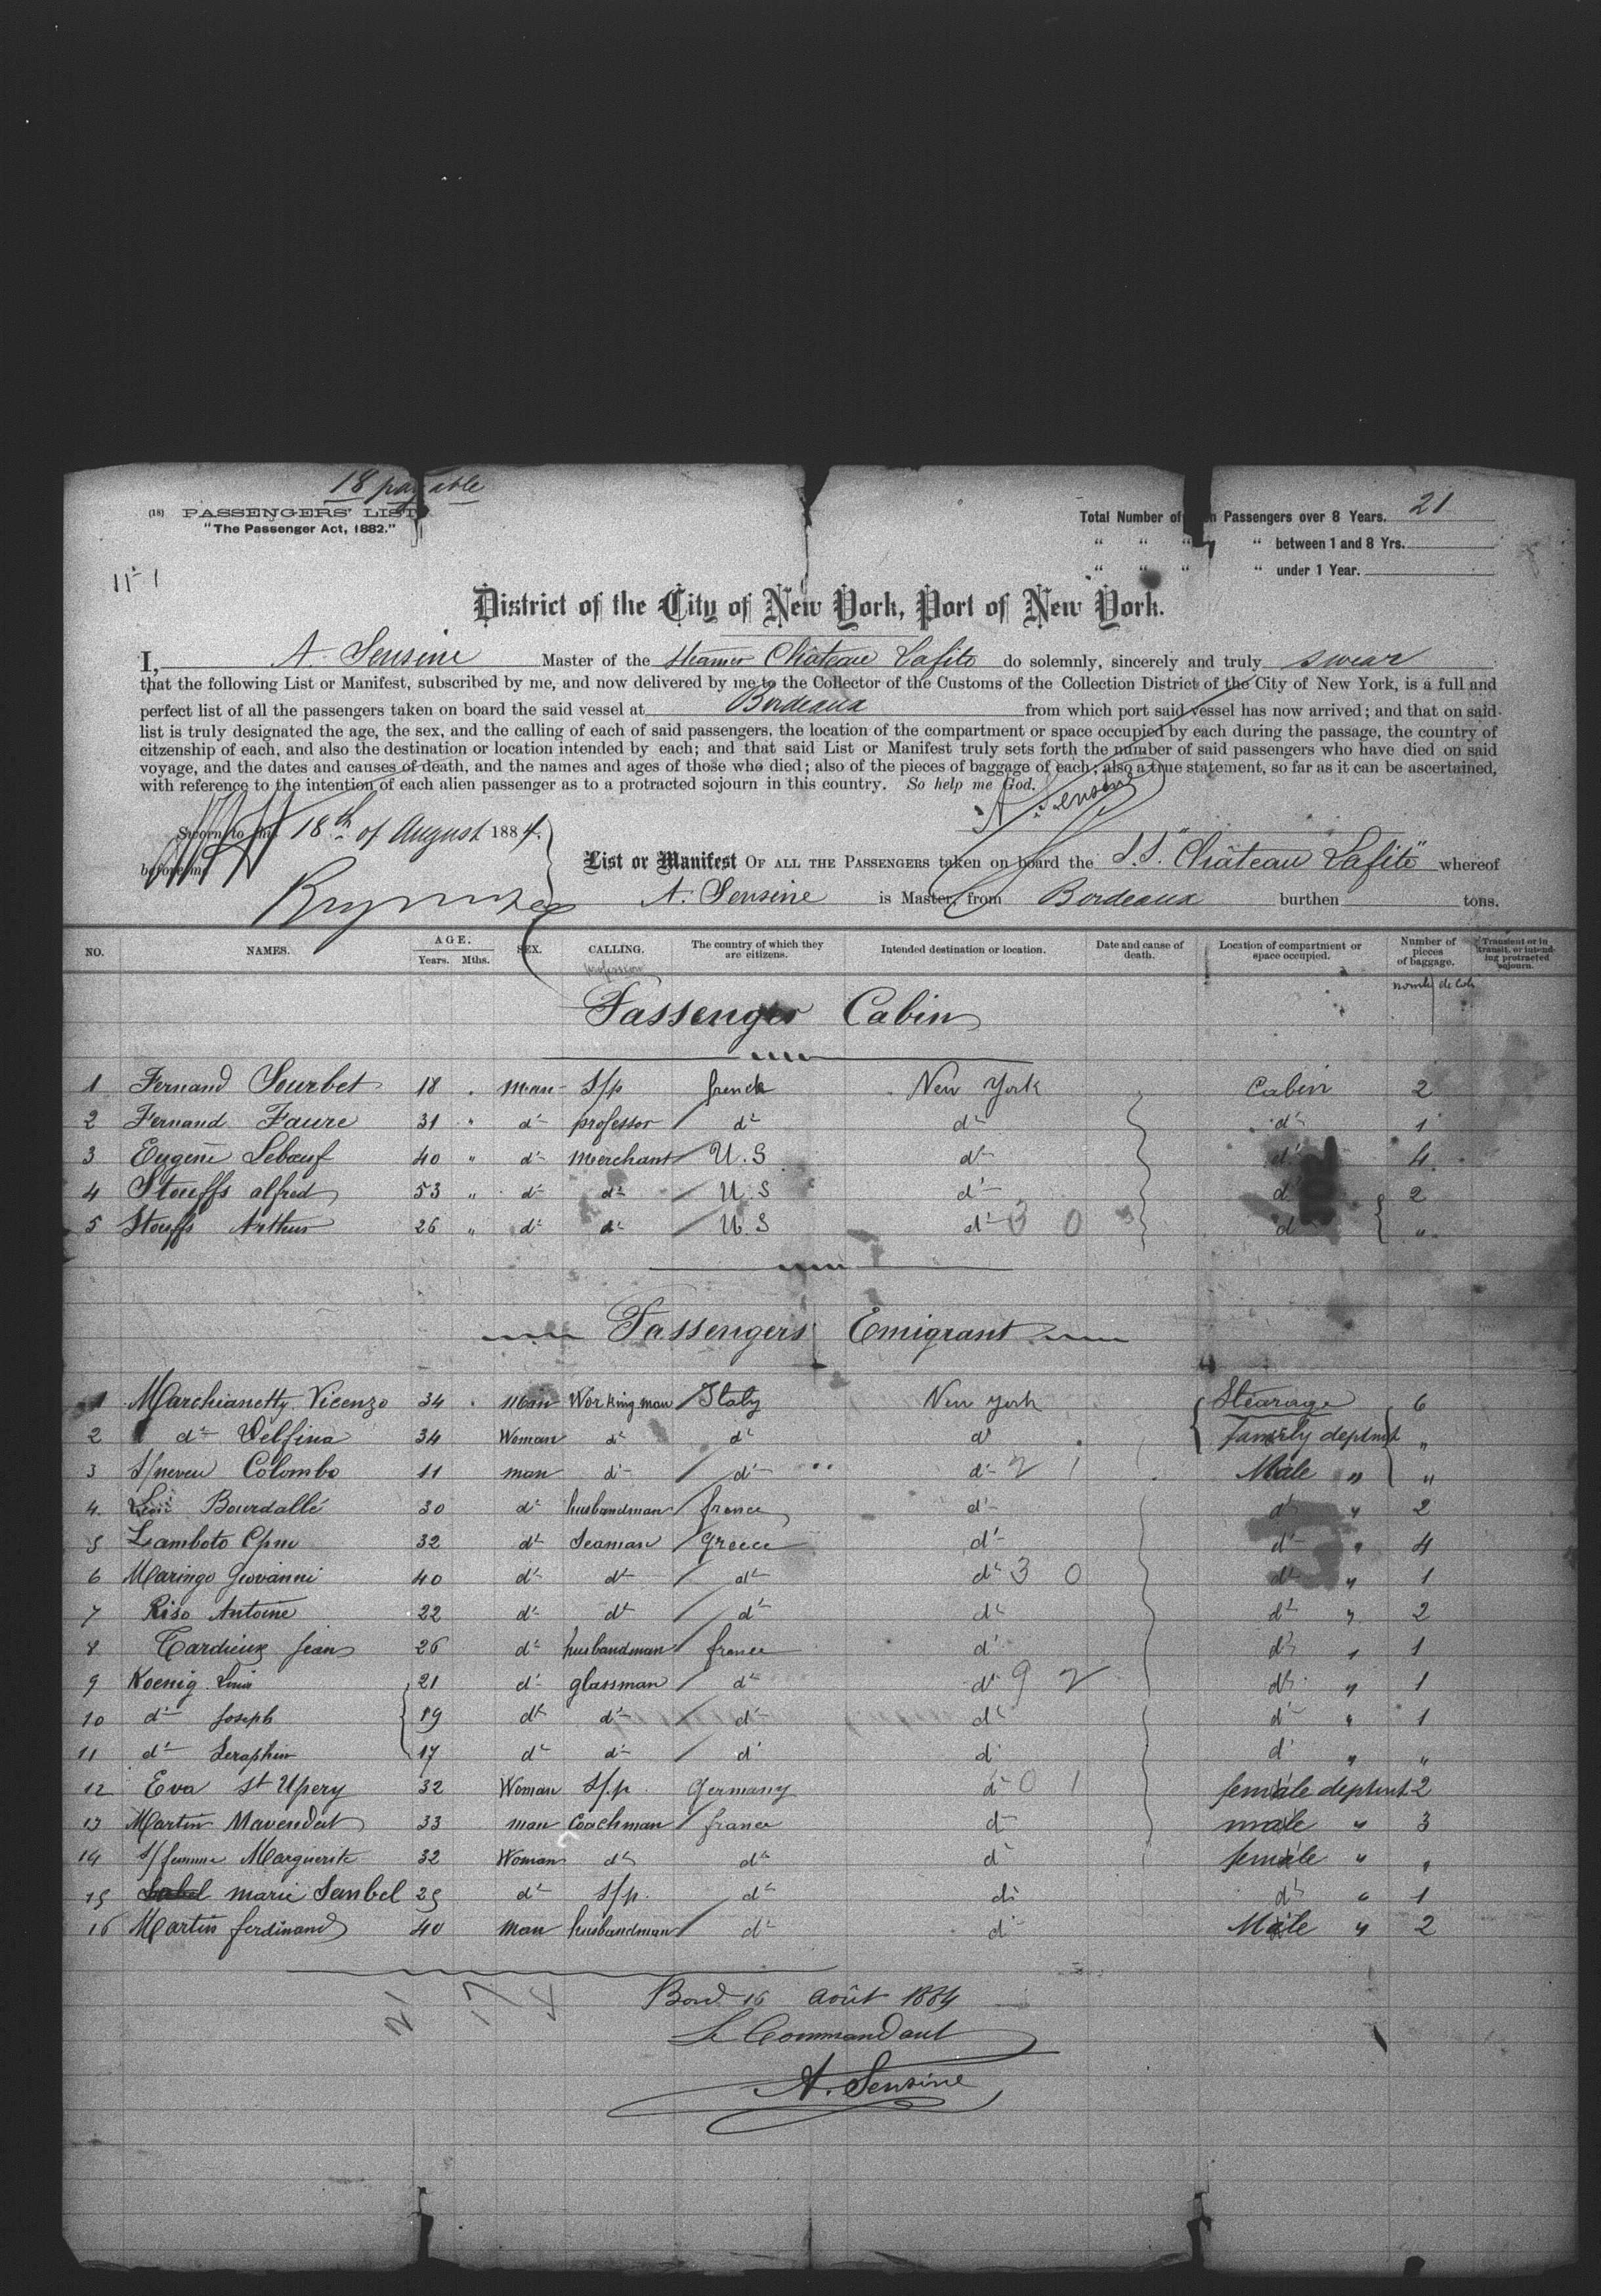 18 payable
(18) PASSENGERS' LIST
"The Passenger Act, 1882."
Total Number of Passengers over 8 Years. 21
" " " " between 1 and 8 Yrs.
" " " " under 1 Year.
District of the City of New York, Port of New York.
I, A. Sensine Master of the Steamer Château Lafite do solemnly, sincerely and truly swear
that the following List or Manifest, subscribed by me, and now delivered by me to the Collector of the Customs of the Collection District of the City of New York, is a full and
perfect list of all the passengers taken on board the said vessel at Bordeaux from which port said vessel has now arrived; and that on said
list is truly designated the age, the sex, and the calling of each of said passengers, the location of the compartment or space occupied by each during the passage, the country of
citzenship of each, and also the destination or location intended by each; and that said List or Manifest truly sets forth the number of said passengers who have died on said
voyage, and the dates and causes of death, and the names and ages of those who died; also of the pieces of baggage of each; also a true statement, so far as it can be ascertained,
with reference to the intention of each alien passenger as to a protracted sojourn in this country. So help me God.
A. Sensine
Sworn to this 18th of August 1884.
before me
List or Manifest OF ALL THE PASSENGERS taken on board the S.S. "Château Lafite" whereof
A. Sensine is Master, from Bordeaux burthen tons.
NO. NAMES. AGE. Years. Mths. SEX. CALLING. The country of which they are citizens. Intended destination or location. Date and cause of death. Location of compartment or space occupied. Number of pieces of baggage. Transient or in transit, or intending protracted sojourn.
profession
Passenger Cabin
1 Fernand Sourbet 18 man S/p french New York Cabin 2
2 Fernand Faure 31 " d° professor d° d° d° 1
3 Eugène Lebœuf 40 " d° Merchant U.S d° d° 4
4 Stouffs alfred 53 " d° d° U.S d° d° 2
5 Stouffs Arthur 26 " d° d° U.S d° 3 0 d "
Passengers Emigrant
1 Marchianetty Vicenzo 34 man Working man Italy New York Stéarage 6
2 d° Delfina 34 Woman d° d° d° family deptmt "
3 S/neveu Colombo 11 man d° d° d° 2 1 Male " "
4. Bourdallé 30 d° husbandman france d° d° " 2
5 Lamboto 32 d° Seaman Greece d° d° " 4
6 Maringo Giovanni 40 d° d° d° d° 3 0 d° " 1
7 Riso Antoine 22 d° d° d° d° d° " 2
8 Tardieux Jean 26 d° husbandman france d° d° " 1
9 Koenig Louis 21 d° glassman d° d° 9 2 d° " 1
10 d° Joseph 19 d° d° d° d° d° " 1
11 d° Seraphin 17 d° d° d° d° d° " "
12 Eva St Upery 32 Woman S/p. Germany d° 0 1 female deptmt 2
13 Martin Mavendat 33 man Coachman france d° male " 3
14 S/femme Marguerite 32 Woman d° d° d° female " "
15 marie Senbel 25 d° S/p. d° d° d° " 1
16 Martin ferdinand 40 man husbandman d° d° Male " 2
21 17 4
Bord 16 Août 1884
Le Commandant
A. Sensine